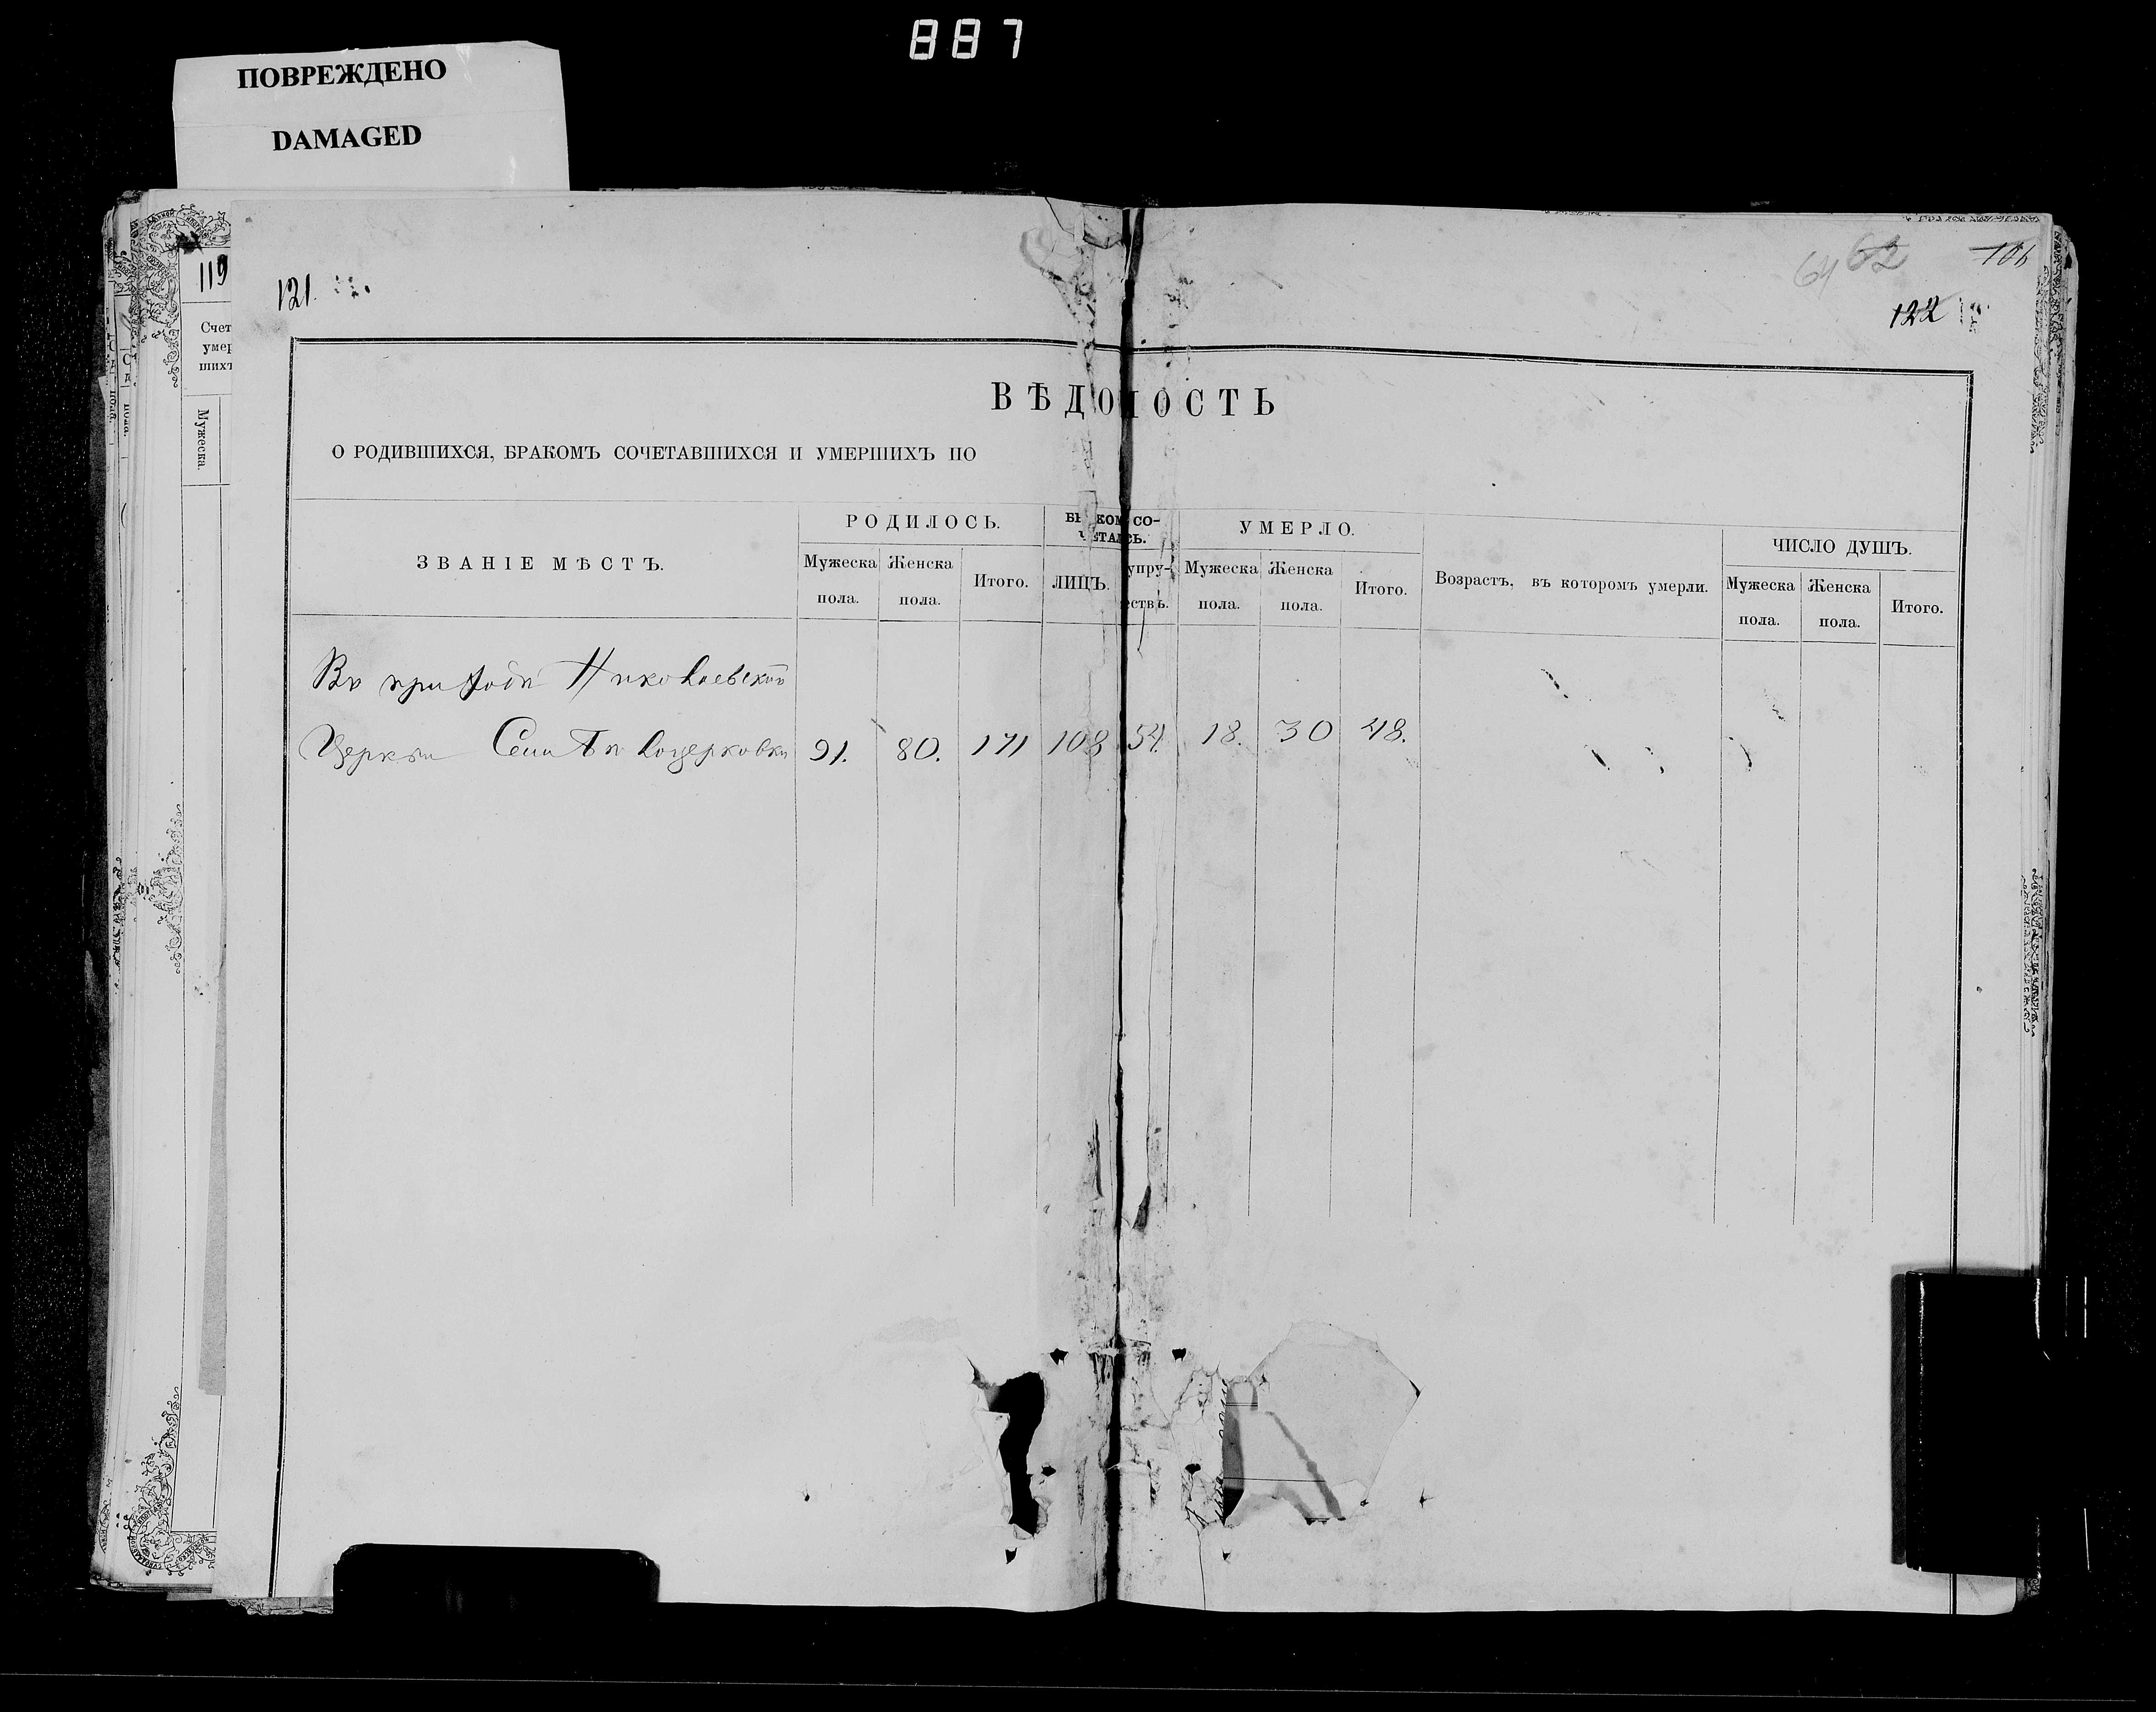 887
ПОВРЕЖДЕНО
DAMAGED
119
Счет
умер
шихъ
Мужеска.
121.
64 62 106
122
ВѢДОМОСТЬ
О РОДИВШИХСЯ, БРАКОМЪ СОЧЕТАВШИХСЯ И УМЕРШИХЪ ПО
ЗВАНІЕ МѢСТЪ.
РОДИЛОСЬ.
Мужеска пола.
Женска пола.
Итого.
БРАКОМ СО-
ЧЕТАЛСЬ.
ЛИЦЪ.
супру-
жествъ.
УМЕРЛО.
Мужеска пола.
Женска пола.
Итого.
Возрастъ, въ которомъ умерли.
ЧИСЛО ДУШЪ.
Мужеска пола.
Женска пола.
Итого.
Въ приходѣ Николаевской
Церкви Села Бѣлоцерковки 91. 80. 171 108 54. 18. 30 48.